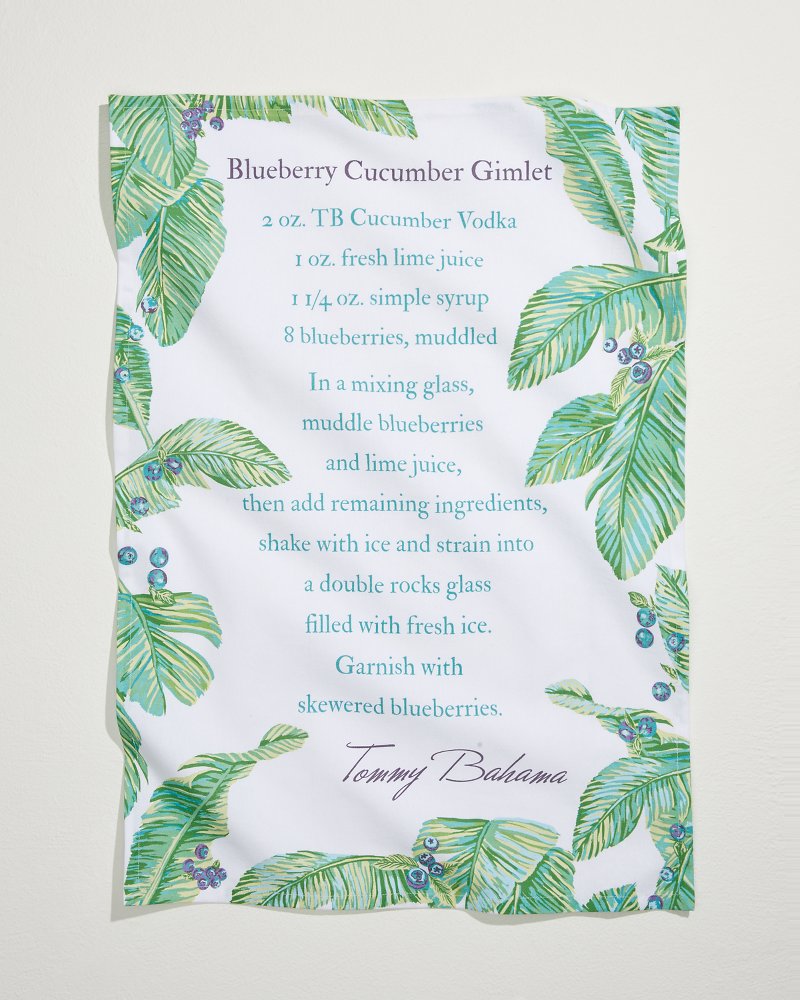 Blueberry Cucumber Gimlet
2 oz. TB Cucumber Vodka
1 oz. fresh lime juice
1 1/4 oz. simple syrup
8 blueberries, muddled
In a mixing glass,
muddle blueberries
and lime juice,
then add remaining ingredients,
shake with ice and strain into
a double rocks glass
filled with fresh ice.
Garnish with
skewered blueberries.
Tommy Bahama